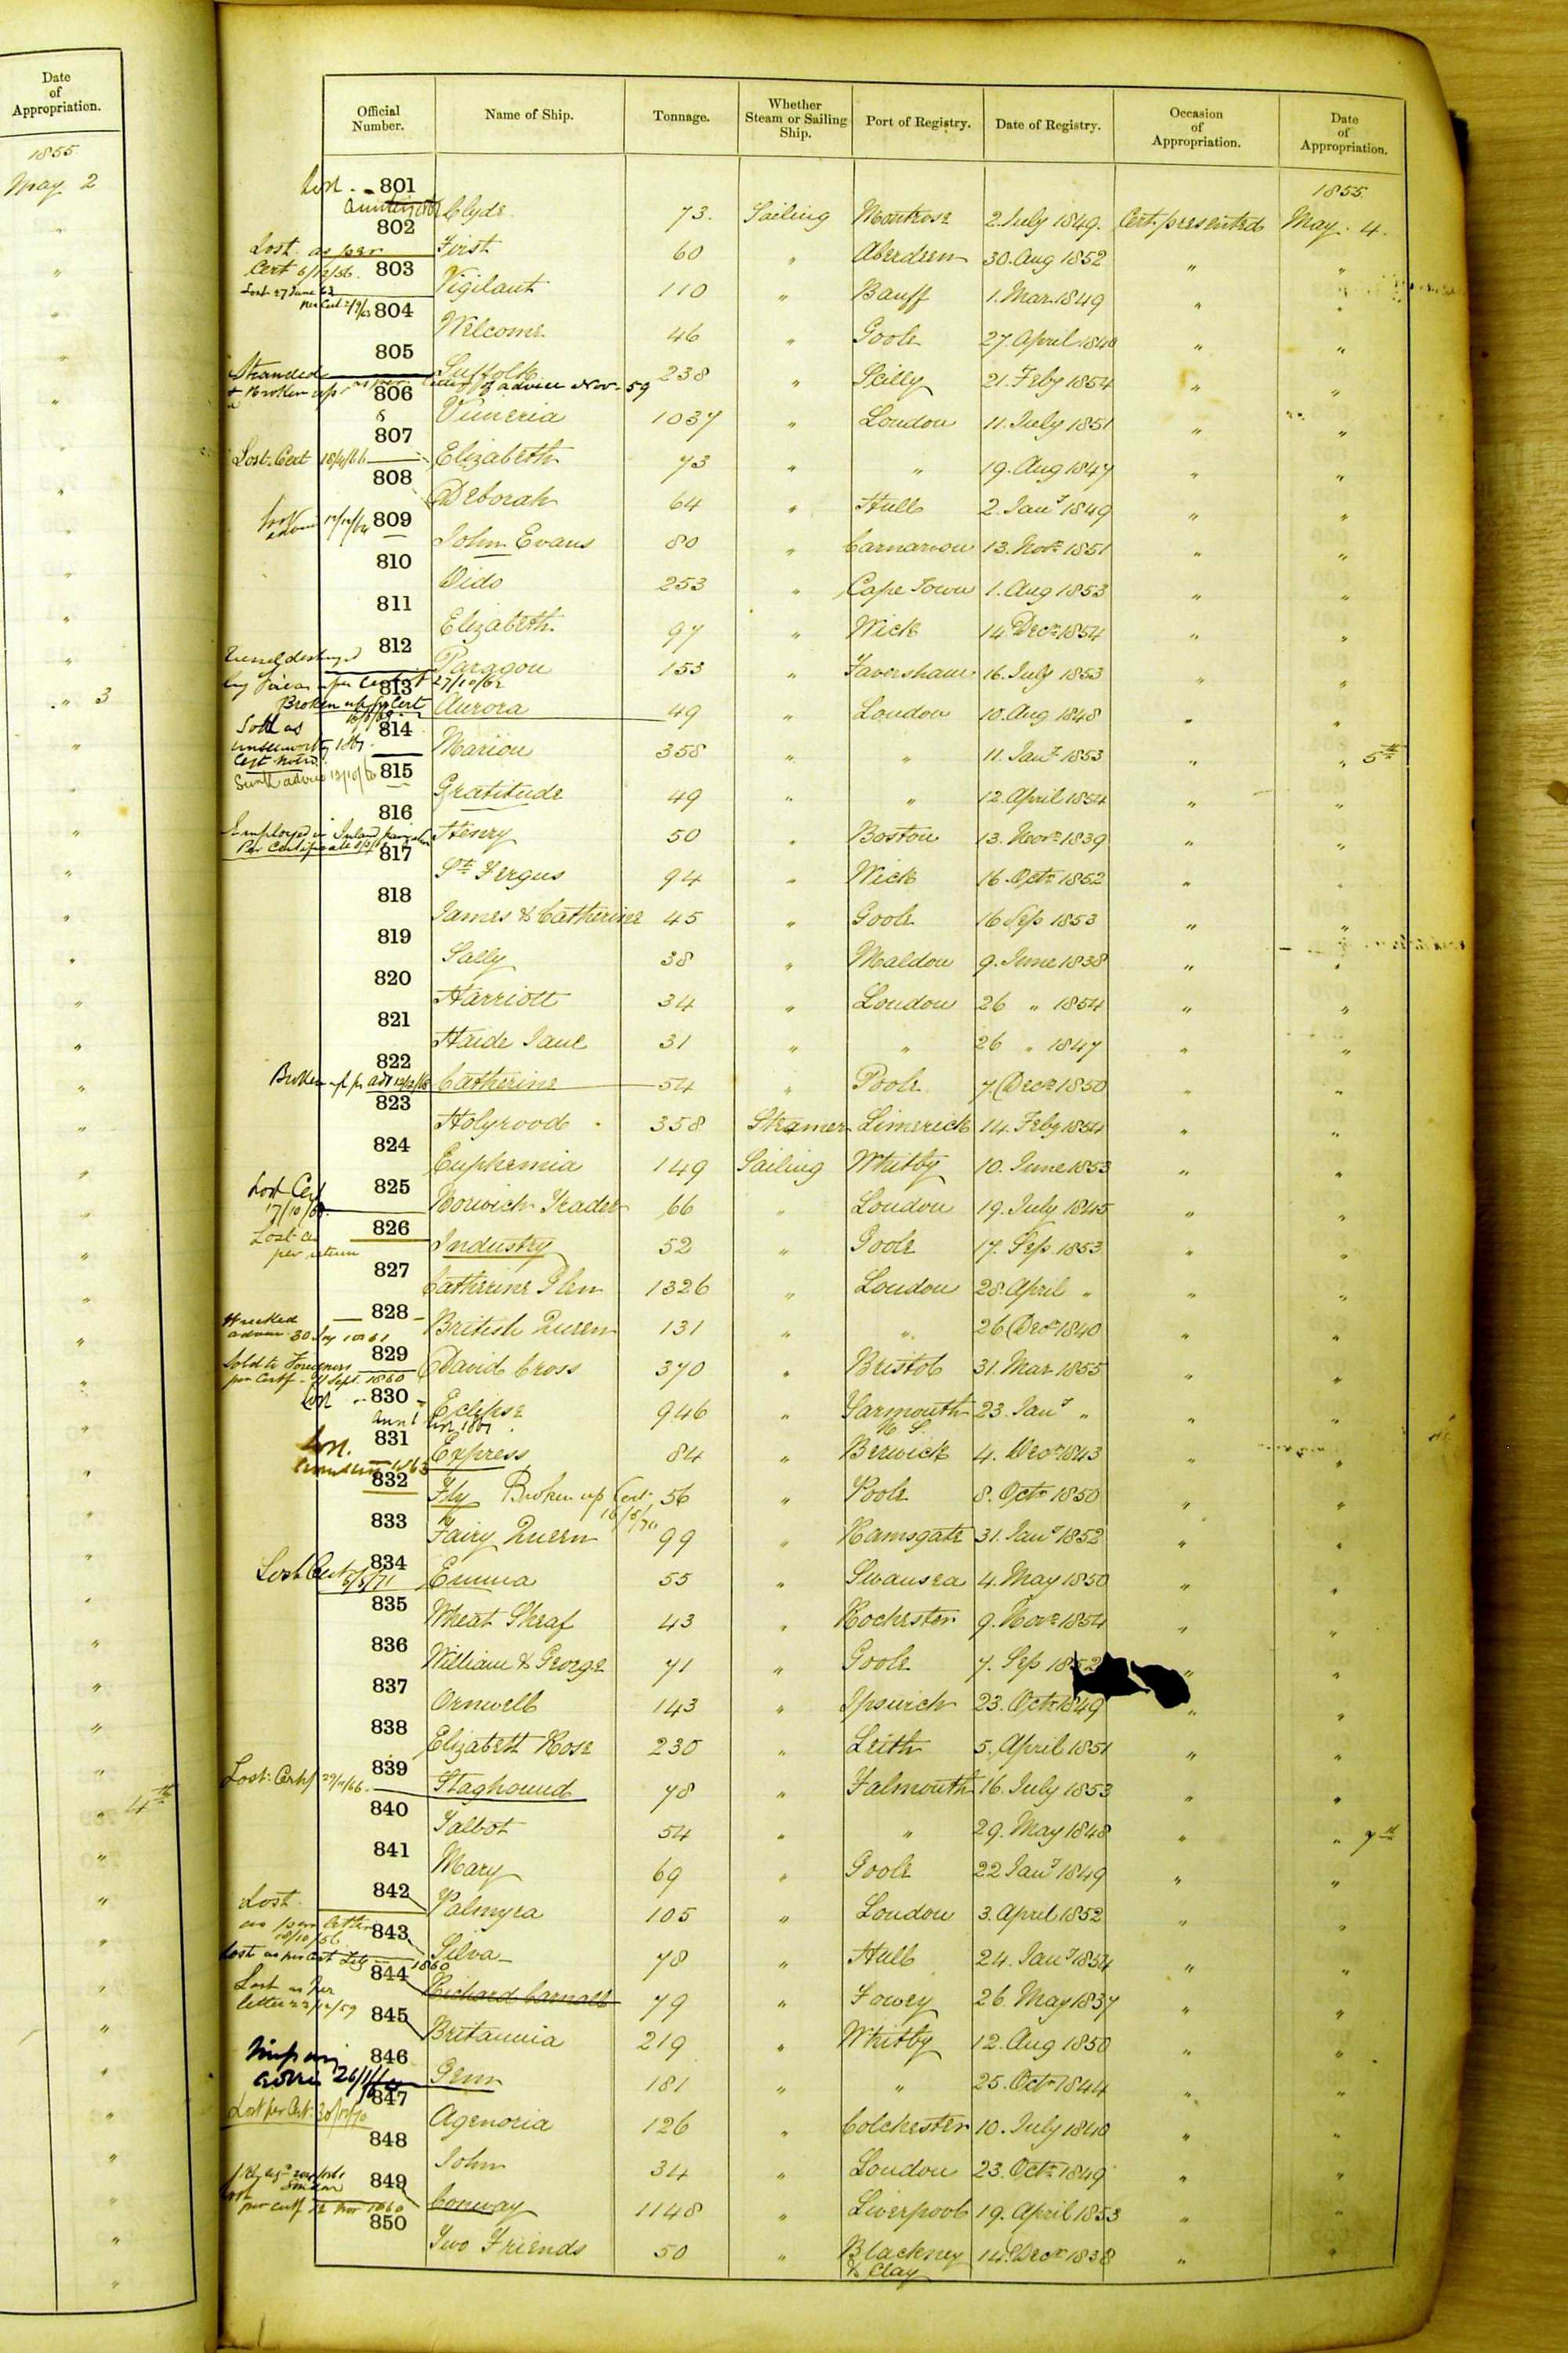 Date
of
Appropriation.
1855
May 2
" 3
4th
Official Number. Name of Ship. Tonnage. Whether Steam or Sailing Ship. Port of Registry. Date of Registry. Occasion of Appropriation. Date of Appropriation.
1855
Lost
801 Clyde 73. Sailing Montrose 2. July 1849. Cert. presented May. 4.
802 First 60 " Aberdeen 30. Aug 1852 " "
Lost. as per
Cert 6/12/56.
803 Vigilant 110 " Banff 1. Mar. 1849 " "
Lost 27 June 63
804 Welcome 46 " Goole 27. April 1840 " "
805 Suffolk 238 " Scilly 21. Feby 1854 " "
Stranded & Broken up as per letter of advice Nov. 59
806 Vimeria 1037 " London 11. July 1851 " "
807 Elizabeth 73 " " 19. Aug 1847 " "
Lost. Cert 18/4/66
808 Deborah 64 " Hull 2. Jany 1849 " "
809 John Evans 80 " Carnarvon 13. Novr 1851 " "
810 Dido 253 " Cape Town 1. Aug 1853 " "
811 Elizabeth. 97 " Wick 14. Decr 1854 " "
812 Paragon 153 " Faversham 16. July 1853 " "
27/10/62
813 Aurora 49 " London 10. Aug 1848 " "
Broken up pr Cert
814 Marion 358 " " 11. Jany 1853 " " 5th
Sold as unseaworthy 1867.
815 Gratitude 49 " " 12. April 1854 " "
Sunk advice 12/10/60
816 Henry 50 " Boston 13. Novr 1839 " "
Employed in Inland Navigation
Per Certificate
817 St Fergus 94 " Wick 16. Octr 1852 " "
818 James & Catherine 45 " Goole 16 Sep 1853 " "
819 Sally 38 " Maldon 9. June 1838 " "
820 Harriott 34 " London 26 " 1854 " "
821 Haide Jane 31 " " 26 " 1847 " "
822 Catherine 54 " Poole 7. Decr 1850 " "
Broken up pr
823 Holyrood 358 Steamer Limerick 14. Feby 1854 " "
824 Euphemia 149 Sailing Whitby 10. June 1853 " "
825 Norwich Trader 66 " London 19. July 1845 " "
Lost Cert
826 Industry 52 " Goole 17. Sep. 1853 " "
Lost as per return
827 Catherine Glen 1326 " London 28. April " " "
828 British Queen 131 " " 26 Decr 1840 " "
Wrecked
829 David Cross 370 " Bristol 31. Mar 1855 " "
Sold to Foreigners
per Certf - Sept. 1860
830 Eclipse 946 " Yarmouth N. S. 23. Jany " " "
Lost
831 Express 84 " Berwick 4. Decr 1843 " "
Lost.
832 Fly Broken up Cert 56 " Poole 8. Octr 1850 " "
833 Fairy Queen 99 " Ramsgate 31. Jany 1852 " "
834 Emma 55 " Swansea 4. May 1850 " "
Lost Cert 6/5/71
835 Wheat Sheaf 43 " Rochester 9. Novr 1854 " "
836 William & George 71 " Goole 7. Sep 1852 " "
837 Orwell 143 " Ipswich 23. Octr 1849 " "
838 Elizabeth Rose 230 " Leith 5. April 1851 " "
839 Staghound 78 " Falmouth 16. July 1853 " "
Lost. Certf 29/11/66.
840 Talbot 54 " " 29. May 1848 " " 7th
841 Mary 69 " Goole 22 Jany 1849 " "
842 Palmyra 105 " London 3. April 1852 " "
Lost.
as per letter
18/10/56
843 Silva 78 " Hull 24. Jany 1854 " "
Lost as per Cert 1860
844 Richard Carnall 79 " Fowey 26. May 1837 " "
Lost as per
letter 22/12/59
845 Britannia 219 " Whitby 12. Aug 1850 " "
846 Gem 181 " " 25. Octr 1844 " "
Missing
847 Agenoria 126 " Colchester 10. July 1840 " "
Lost per Cert. 30/12/70
848 John 34 " London 23. Octr 1849 " "
849 Conway 1148 " Liverpool 19. April 1853 " "
Lost
per certf 12 Nov 1860
850 Two Friends 50 " Blackney & Clay 14. Decr 1838 " "